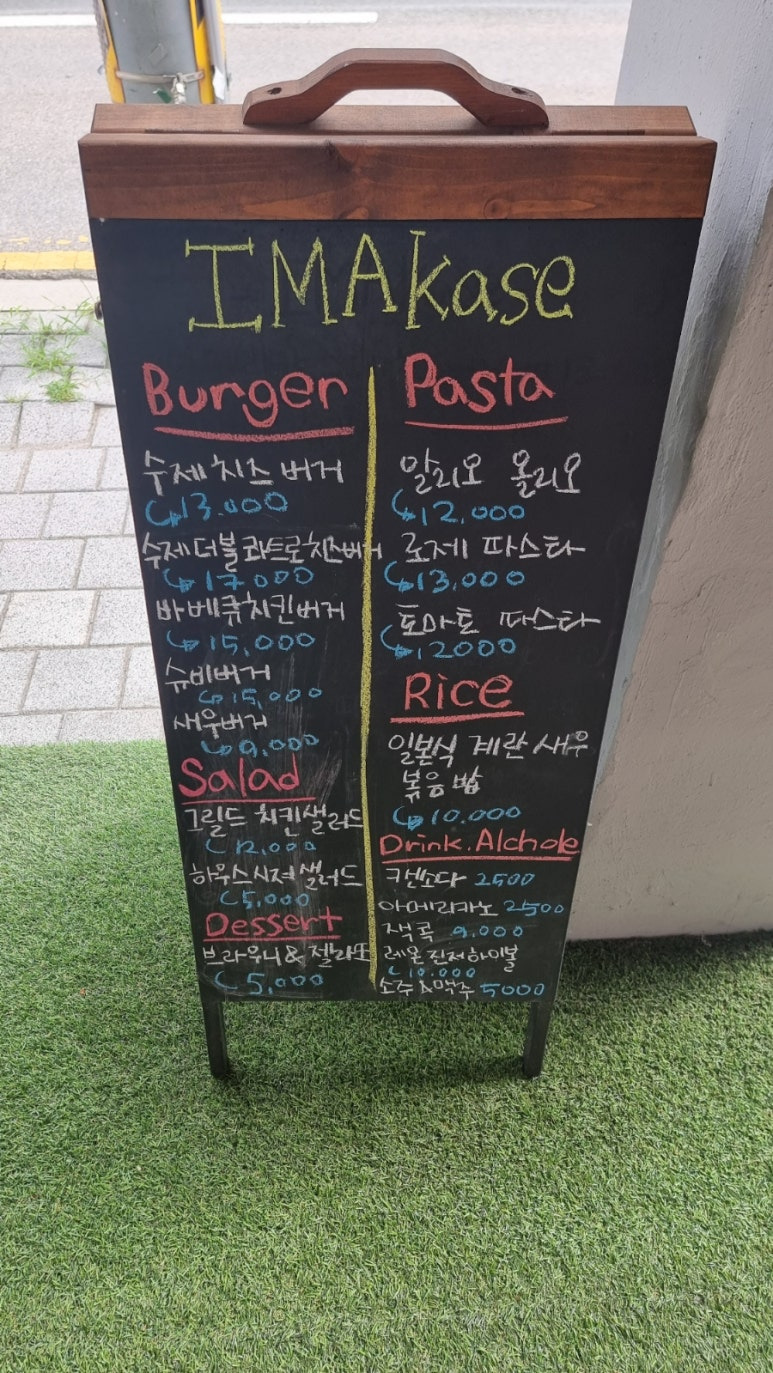 IMAkase
Burger
수제 치즈 버거
↳13.000
수제 더블 콰트로치즈버거
↳17.000
바베큐치킨버거
↳15,000
슈비버거
↳15,000
새우버거
↳9,000
Salad
그릴드 치킨샐러드
12,000
하우스시져샐러드
5,000
Dessert
브라우니 & 젤라또
5,000
Pasta
알리오 올리오
↳12.000
로제 파스타
↳13,000
토마토 파스타
↳12000
Rice
일본식 계란 새우
볶음밥
↳10.000
Drink.Alchole
캔소다 2500
아메리카노 2500
잭콕 9,000
레몬진저하이볼
↳10.000
소주&맥주 5000